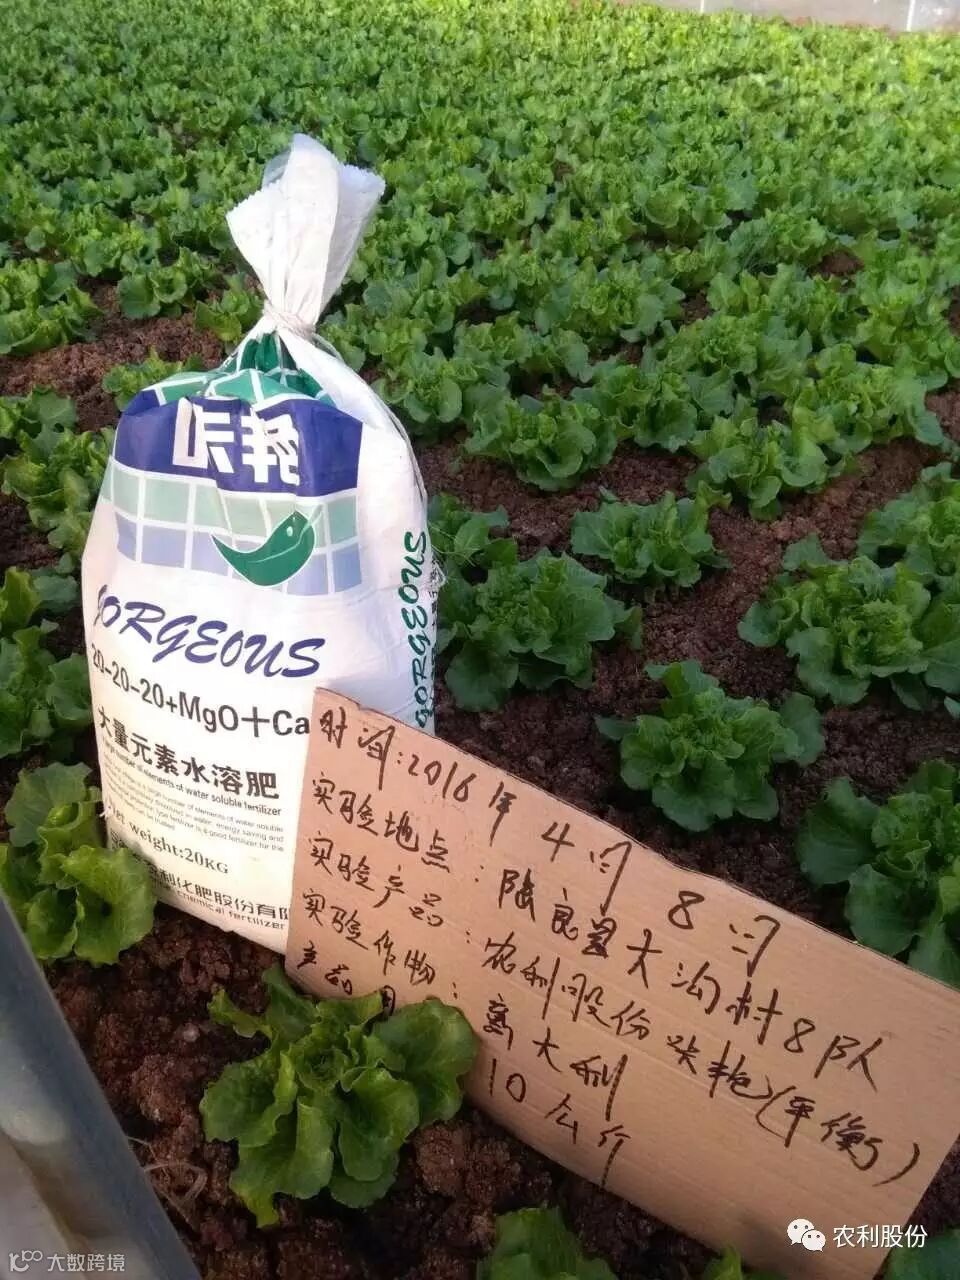 咔艳
GORGEOUS
20-20-20+MgO+Ca
大量元素水溶肥
elements of water soluble fertilizer
Net weight:20KG
利化肥股份有限
chemical fertilizer
GORGEOUS
时间:2016年4月8日
实验地点:陆良县大沟村8队
实验产品:农利股份咔艳(平衡)
实验作物:意大利
10公斤
农利股份
大数跨境